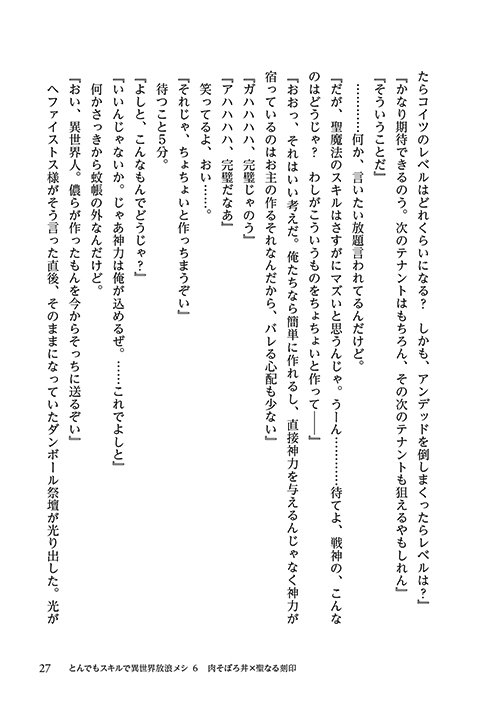 たらコイツのレベルはどれくらいになる？　しかも、アンデッドを倒しまくったらレベルは？』
『かなり期待できるのう。次のテナントはもちろん、その次のテナントも狙えるやもしれん』
『そういうことだ』
…………何か、言いたい放題言われてるんだけど。
『だが、聖魔法のスキルはさすがにマズいと思うんじゃ。うーん…………待てよ、戦神の、こんな
のはどうじゃ？　わしがこういうものをちょちょいと作って――』
『おおっ、それはいい考えだ。俺たちなら簡単に作れるし、直接神力を与えるんじゃなく神力が
宿っているのはお主の作るそれなんだから、バレる心配も少ない』
『ガハハハハ、完璧じゃのう』
『アハハハハ、完璧だなあ』
笑ってるよ、おい……。
『それじゃ、ちょちょいと作っちまうぞい』
待つこと5分。
『よしと、こんなもんでどうじゃ？』
『いいんじゃないか。じゃあ神力は俺が込めるぜ。……これでよしと』
何かさっきから蚊帳の外なんだけど。
『おい、異世界人。儂らが作ったもんを今からそっちに送るぞい』
ヘファイストス様がそう言った直後、そのままになっていたダンボール祭壇が光り出した。光が
27　とんでもスキルで異世界放浪メシ 6　肉そぼろ丼×聖なる刻印